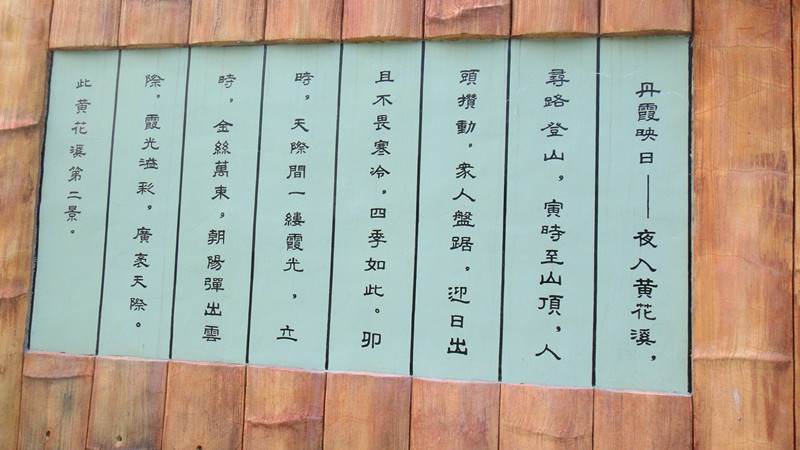 丹霞映日——夜入黄花溪，
尋路登山，寅時至山頂，人
頭攢動。衆人盤踞，迎日出
且不畏寒冷，四季如此。卯
時，天際間一縷霞光，立
時，金絲萬束，朝陽彈出雲
際。霞光溢彩，廣袤天際。
此黄花溪第二景。